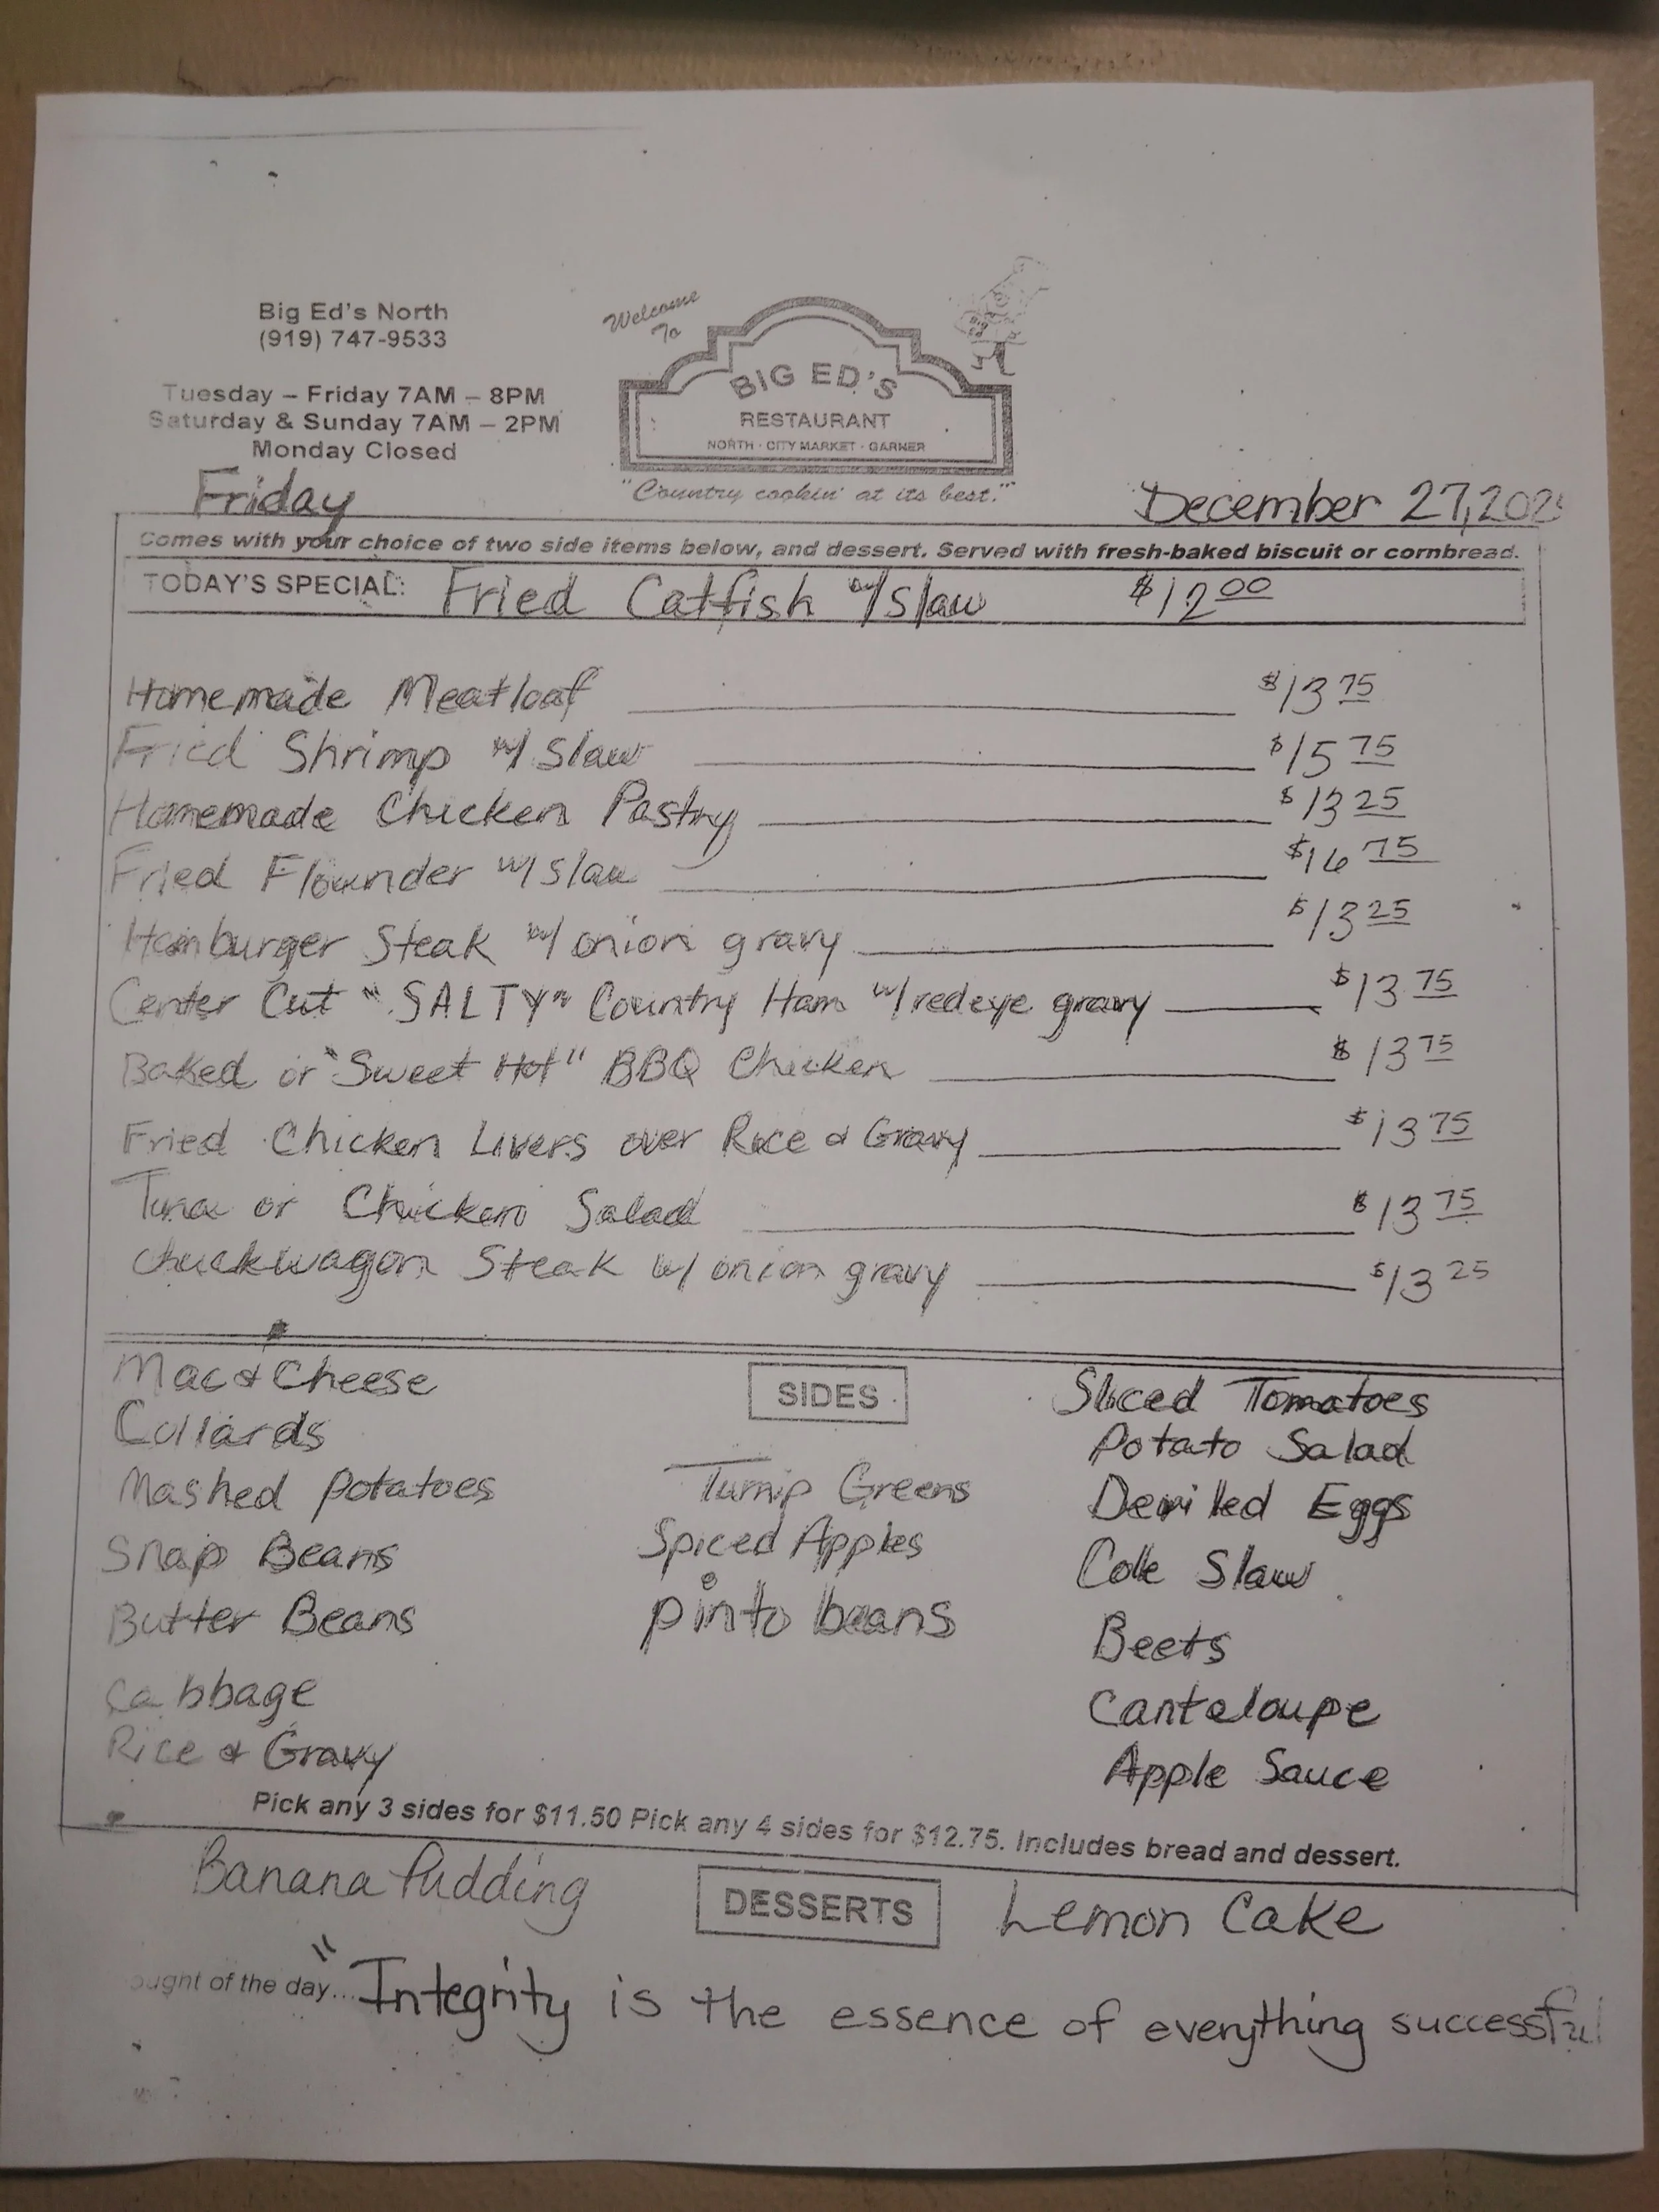 Big Ed's North
(919) 747-9533
Tuesday – Friday 7AM – 8PM
Saturday & Sunday 7AM – 2PM
Monday Closed
Welcome To
BIG ED'S
RESTAURANT
NORTH · CITY MARKET · GARNER
"Country cookin' at its best."
Big Ed
Friday
December 27, 202
Comes with your choice of two side items below, and dessert. Served with fresh-baked biscuit or cornbread.
TODAY'S SPECIAL: Fried Catfish w/ Slaw $12.00
Homemade Meatloaf $13.75
Fried Shrimp w/ Slaw $15.75
Homemade Chicken Pastry $13.25
Fried Flounder w/ Slaw $16.75
Hamburger Steak w/ onion gravy $13.25
Center Cut "SALTY" Country Ham w/ redeye gravy $13.75
Baked or "Sweet Hot" BBQ Chicken $13.75
Fried Chicken Livers over Rice & Gravy $13.75
Tuna or Chicken Salad $13.75
Chuckwagon Steak w/ onion gravy $13.25
SIDES
Mac & Cheese
Collards
Mashed Potatoes
Snap Beans
Butter Beans
Cabbage
Rice & Gravy
Turnip Greens
Spiced Apples
pinto beans
Sliced Tomatoes
Potato Salad
Deviled Eggs
Cole Slaw
Beets
Cantaloupe
Apple Sauce
Pick any 3 sides for $11.50 Pick any 4 sides for $12.75. Includes bread and dessert.
Banana Pudding
DESSERTS
Lemon Cake
ought of the day... "Integrity is the essence of everything successful